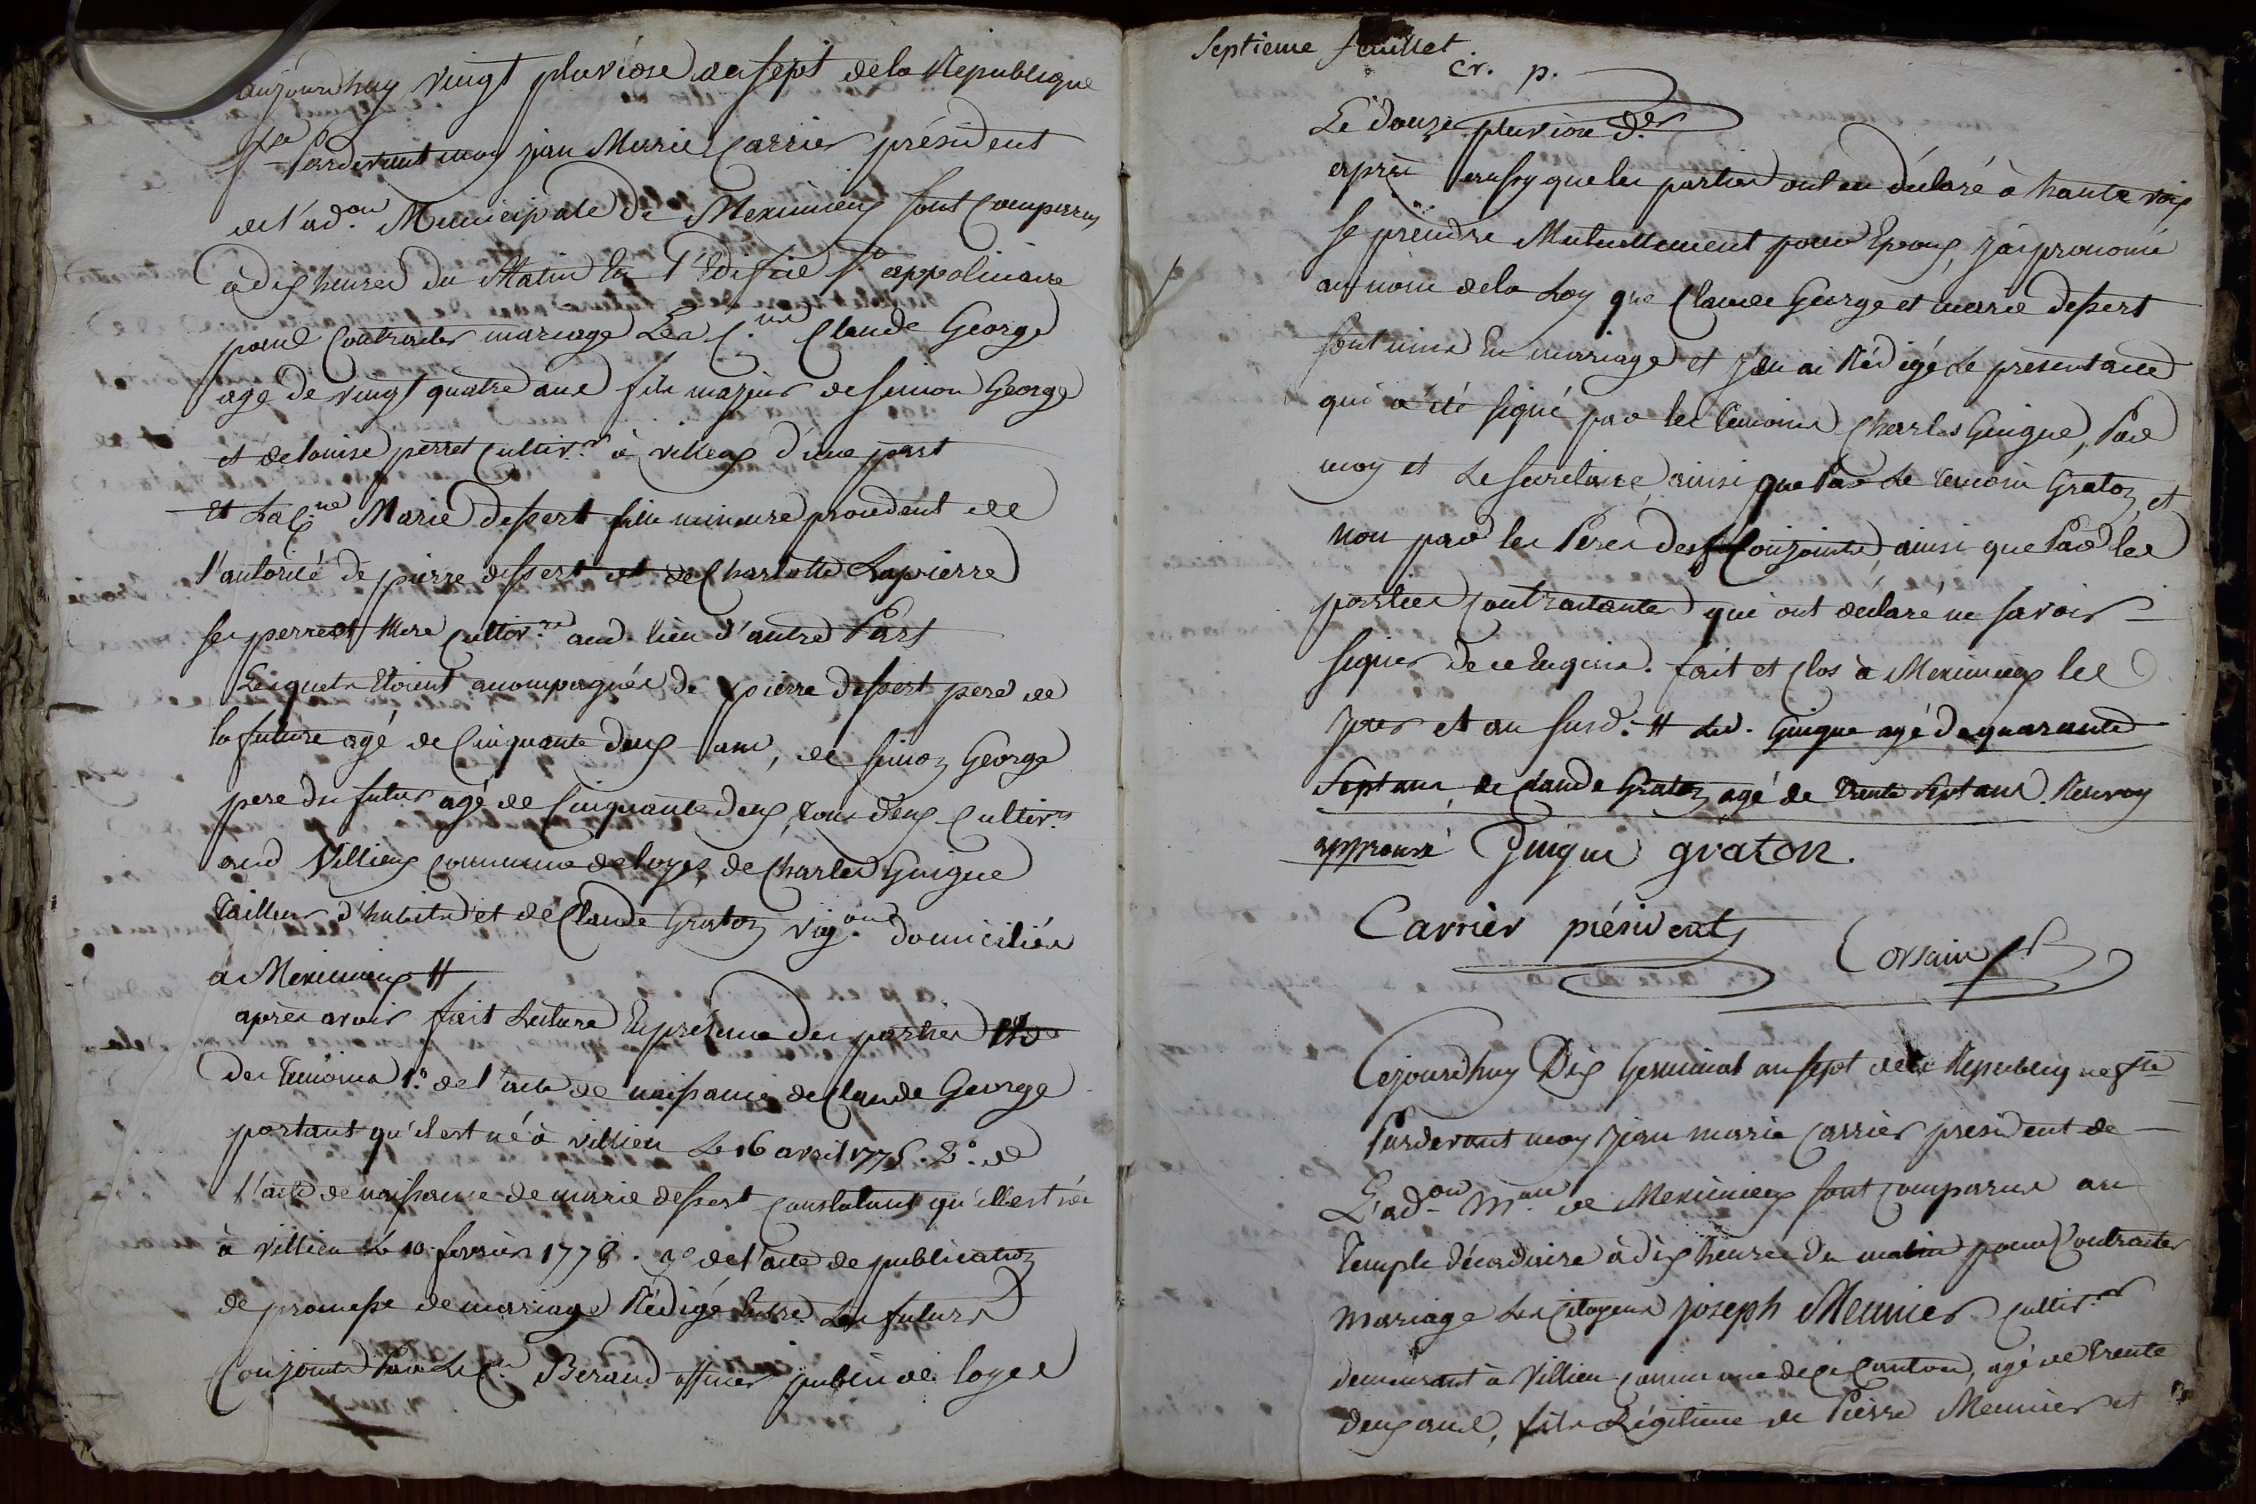 aujourdhuy vingt pluviose an sept dela Republique
fse Pardevant moy jean Marie Carrier président
de l'ad.on Municipale de Meximieux sont Comparus
a dix heures du Matin En l'Edifice St appolinaire
pour Contracter mariage Les C.ens Claude George
agé de vingt quatre ans fils majeur de simon George
et de louise perret Cultiv.rs à villieux d'une part
et La C.ne Marie dessert fille mineure procedent de
l'autorité de pierre dessert et de Charlotte Lapierre
ses perre et Mere Cultiv.rs aud. lieu d'autre Part
Lesquels Etoient accompagnés de pierre dessert pere de
la future agé de Cinquante deux ans, de simon George
pere du futur agé de Cinquante deux, tous deux Cultiv.rs
aud Villieux commune de loyes, de Charles Guigue
Tailleur d'habits et de Claude Graton vig.on domiciliés
a Meximieux #
après avoir fait Lecture En présence des parties
des temoins 1.° de l'acte de naissance de Claude George
portant qu'il est né à villieu Le 16 avril 1775. 2.° de
l'acte de naissance de marie dessert Constatant qu'elle est née
à villieu Le 10 fevrier 1778. 3° de l'acte de publication
de promesse de mariage Rédigé Entre Les futurs
Conjoints Par Le C.en Beraud officier public de loyes
Septieme feuillet.
cr. p.
Le douze pluviose d.er
après aussy que les parties ont eu déclaré à haute voix
se prendre Mutuellement pour Epoux, j'ai prononcé
au nom dela Loy que Claude George et marie dessert
sont unis En mariage et j'en ai Rédigé Le present acte
qui a été signé par les temoins Charles Guigue, Par
moy et Le Secretaire, ainsi que Par Le temoin Graton, et
non par les Peres des Conjoints, ainsi que Par les
parties Contractantes qui ont déclaré ne savoir
signer de ce Enquis. fait et Clos à Meximieux les
jour et an susd. # Led. Guigue agé de quarante
Sept ans, de Claude Graton agé de trente sept ans. Renvoy
approuvé Guigue graton.
Carrier président
Corsain
Cejourdhuy Dix Germinal an sept dela Republique fse
Pardevant moy jean marie Carrier president de
L'ad.on M.au de Meximieux sont comparus au
Temple décadaire à dix heures du matin pour Contracter
mariage Les Citoyens joseph Meunier Cultiv.r
demeurant à Villieu Commune de ce Canton, agé de trente
deux ans, fils Légitime de Pierre Meunier et